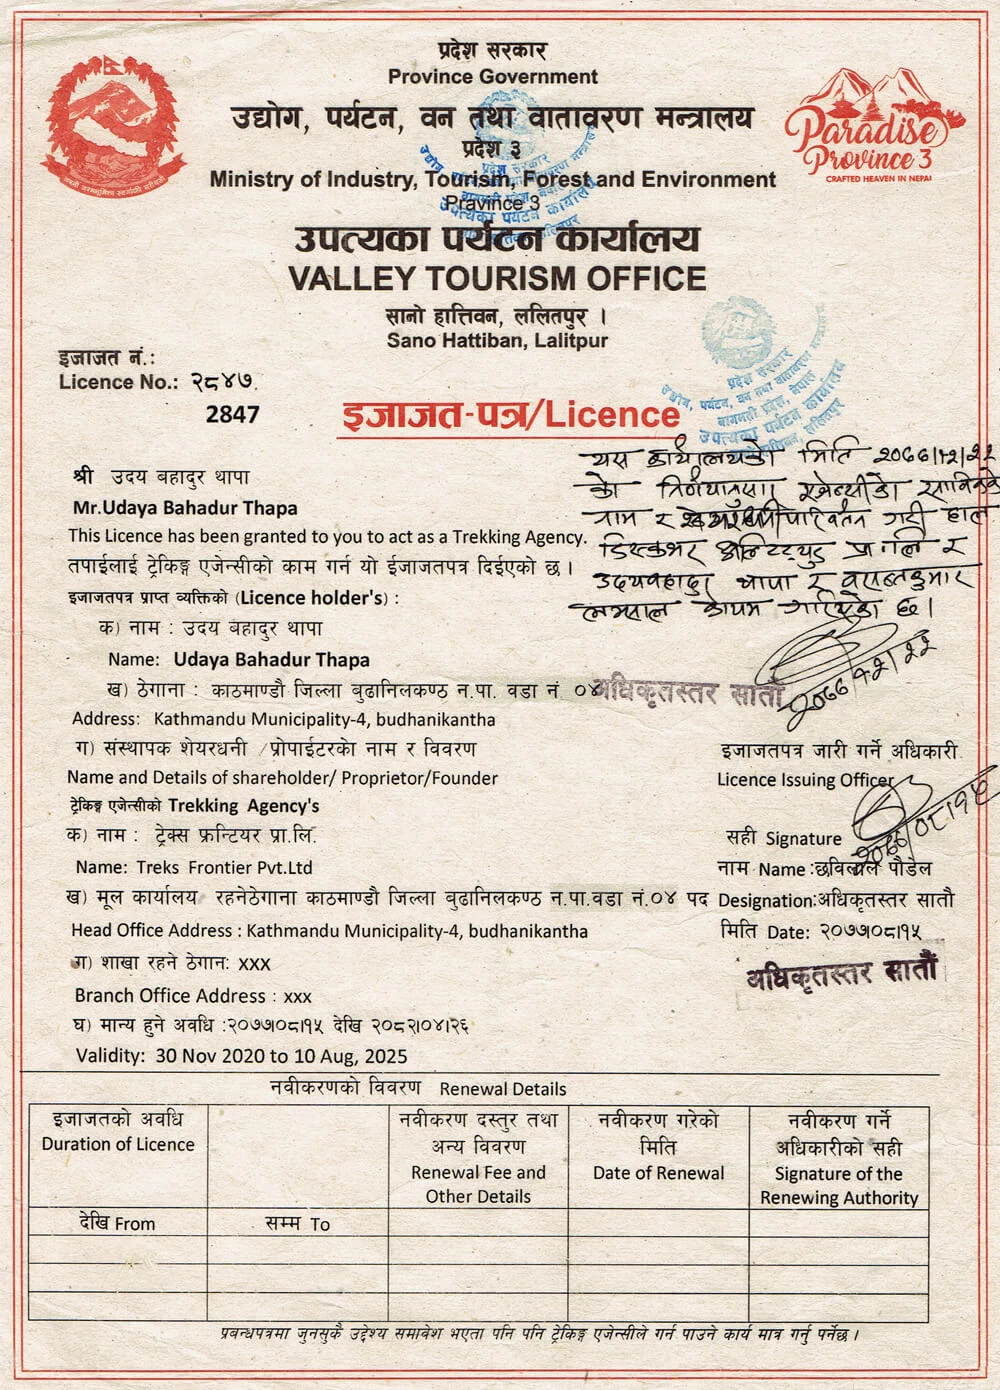 प्रदेश सरकार
Province Government
उद्योग, पर्यटन, वन तथा वातावरण मन्त्रालय
प्रदेश ३
Ministry of Industry, Tourism, Forest and Environment
Pravince 3
Paradise
Province 3
CRAFTED HEAVEN IN NEPAL
उपत्यका पर्यटन कार्यालय
VALLEY TOURISM OFFICE
सानो हात्तिवन, ललितपुर ।
Sano Hattiban, Lalitpur
प्रदेश सरकार
उद्योग, पर्यटन, वन तथा वातावरण मन्त्रालय
बागमती प्रदेश, नेपाल
उपत्यका पर्यटन कार्यालय
ललितपुर
इजाजत नं.:
Licence No.: २८४७.
2847
इजाजत-पत्र/Licence
यस कार्यालयको मिति २०७७।१२।२२
को निर्णयानुसार एजेन्सीको
नाम र परिवर्तन गरी हाल
प्रा.लि र
उदयबहादुर थापा र बसन्तकुमार
लम्साल कायम गरिएको छ।
२०७७/१२/२२
अधिकृतस्तर सातौं
श्री उदय बहादुर थापा
Mr.Udaya Bahadur Thapa
This Licence has been granted to you to act as a Trekking Agency.
तपाईलाई ट्रेकिङ्ग एजेन्सीको काम गर्न यो ईजाजतपत्र दिईएको छ ।
इजाजतपत्र प्राप्त व्यक्तिको (Licence holder's) :
क) नाम : उदय बहादुर थापा
Name: Udaya Bahadur Thapa
ख) ठेगाना : काठमाण्डौ जिल्ला बुढानिलकण्ठ न.पा. वडा नं. ०४
Address: Kathmandu Municipality-4, budhanikantha
ग) संस्थापक शेयरधनी /प्रोपाईटरको नाम र विवरण
Name and Details of shareholder/ Proprietor/Founder
ट्रेकिङ्ग एजेन्सीको Trekking Agency's
क) नाम : ट्रेक्स फ्रन्टियर प्रा.लि.
Name: Treks Frontier Pvt.Ltd
ख) मूल कार्यालय रहनेठेगाना काठमाण्डौ जिल्ला बुढानिलकण्ठ न.पा.वडा नं.०४
Head Office Address : Kathmandu Municipality-4, budhanikantha
ग) शाखा रहने ठेगान: xxx
Branch Office Address : xxx
घ) मान्य हुने अवधि :२०७७।०८।१५ देखि २०८२।०४।२६
Validity: 30 Nov 2020 to 10 Aug, 2025
इजाजतपत्र जारी गर्ने अधिकारी
Licence Issuing Officer
सही Signature
२०७७/०८/१५
नाम Name :छविलाल पौडेल
पद Designation:अधिकृतस्तर सातौ
मिति Date: २०७७।०८।१५
अधिकृतस्तर सातौं
नवीकरणको विवरण Renewal Details
इजाजतको अवधि
Duration of Licence
नवीकरण दस्तुर तथा
अन्य विवरण
Renewal Fee and
Other Details
नवीकरण गरेको
मिति
Date of Renewal
नवीकरण गर्ने
अधिकारीको सही
Signature of the
Renewing Authority
देखि From
सम्म To
प्रबन्धपत्रमा जुनसुकै उद्देश्य समावेश भएता पनि पनि ट्रेकिङ्ग एजेन्सीले गर्न पाउने कार्य मात्र गर्नु पर्नेछ ।